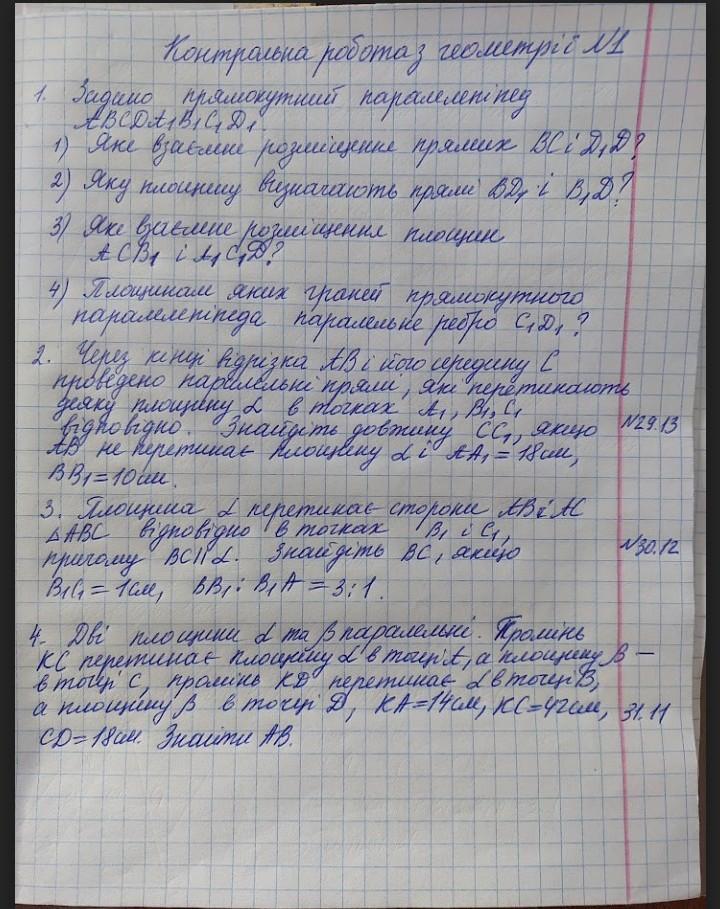 Контрольна робота з геометрії №1
1. Задано прямокутний паралелепіпед
ABCDA₁B₁C₁D₁.
1) Яке взаємне розміщення прямих BC і D₁D?
2) Яку площину визначають прямі BD₁ і B₁D?
3) Яке взаємне розміщення площин
ACB₁ і A₁C₁D?
4) Площинам яких граней прямокутного
паралелепіпеда паралельне ребро C₁D₁?
2. Через кінці відрізка AB і його середину C
проведено паралельні прямі, які перетинають
деяку площину α в точках A₁, B₁, C₁
відповідно. Знайдіть довжину CC₁, якщо №29.13
AB не перетинає площину α і AA₁ = 18см,
BB₁ = 10см.
3. Площина α перетинає сторони AB і AC
△ABC відповідно в точках B₁ і C₁,
причому BC || α. Знайдіть BC, якщо №30.12
B₁C₁ = 1см, BB₁ : B₁A = 3:1.
4. Дві площини α та β паралельні. Промінь
KC перетинає площину α в точці A, а площину β —
в точці C, промінь KD перетинає α в точці B,
а площину β в точці D, KA=14см, KC=42см, 31.11
CD=18см. Знайти AB.